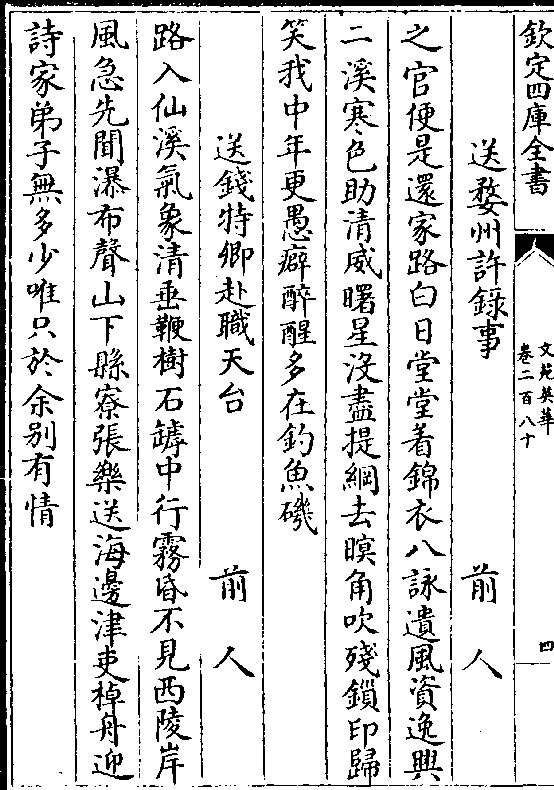 欽定四庫全書
文苑英華
卷二百八十
四
送婺州許錄事　前人
之官便是還家路白日堂堂着錦衣八詠遺風資逸興
二溪寒色助清威曙星沒盡提綱去暝角吹殘鎖印歸
笑我中年更愚癖醉醒多在釣魚磯
送錢特卿赴職天台　前人
路入仙溪氣象清垂鞭樹石罅中行霧昏不見西陵岸
風急先聞瀑布聲山下縣寮張樂送海邊津吏棹舟迎
詩家弟子無多少唯只於余别有情